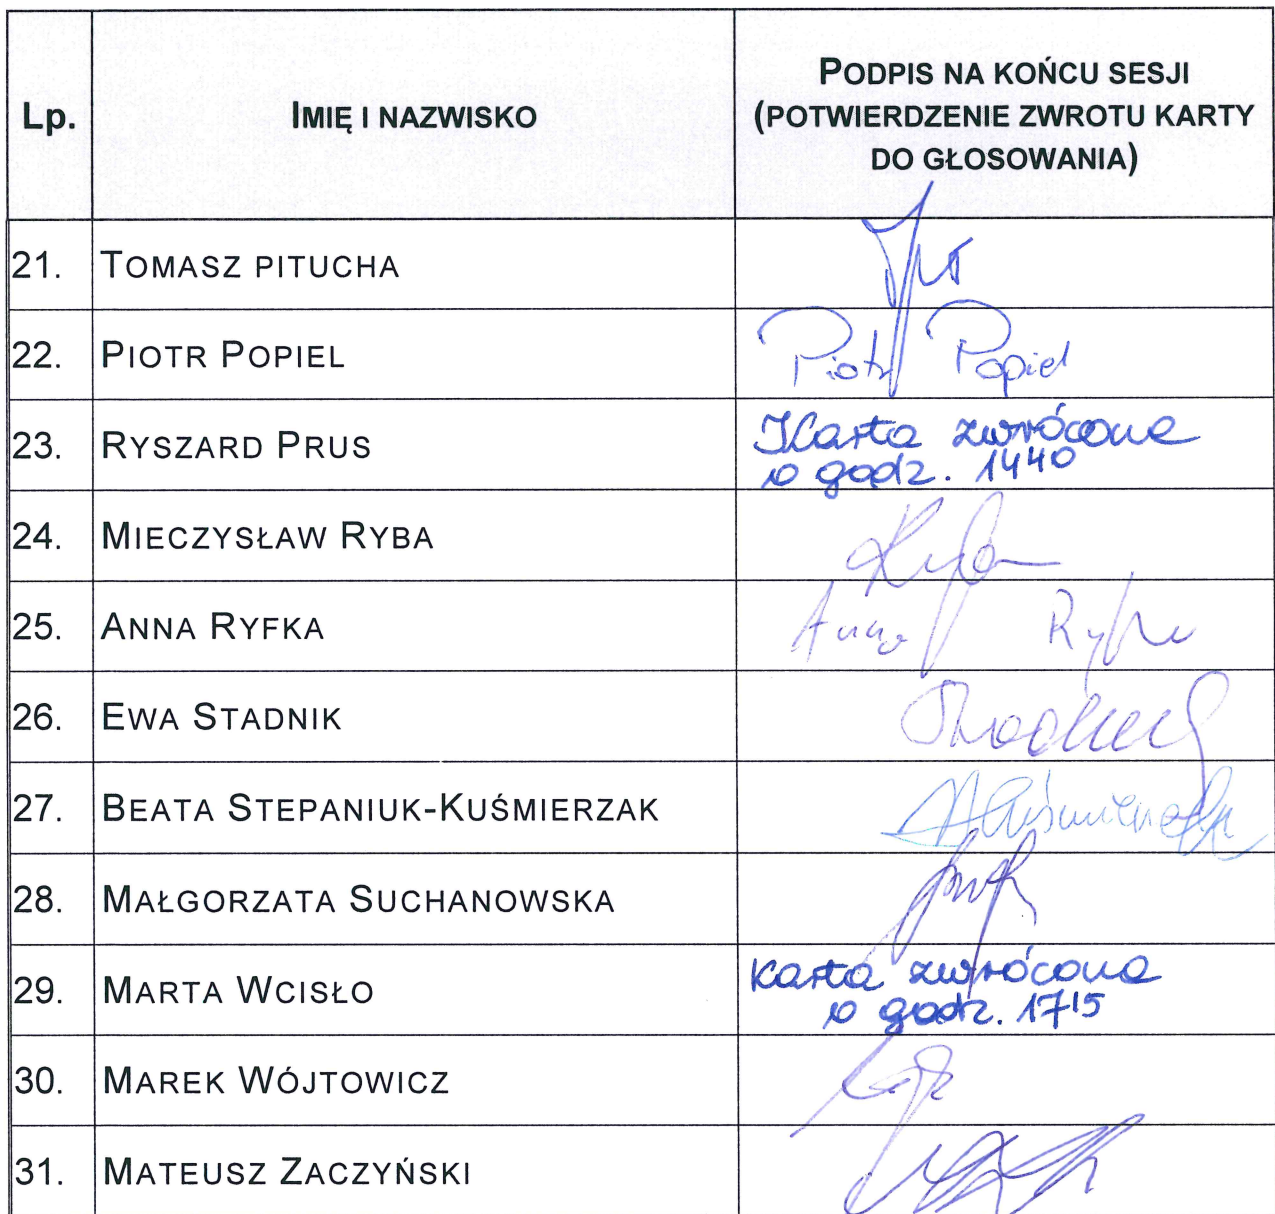 Lp.
IMIĘ I NAZWISKO
PODPIS NA KOŃCU SESJI
(POTWIERDZENIE ZWROTU KARTY
DO GŁOSOWANIA)
21. TOMASZ PITUCHA
22. PIOTR POPIEL Piotr Popiel
23. RYSZARD PRUS Karta zwrócona
o godz. 1440
24. MIECZYSŁAW RYBA
25. ANNA RYFKA Anna Ryfka
26. EWA STADNIK
27. BEATA STEPANIUK-KUŚMIERZAK
28. MAŁGORZATA SUCHANOWSKA
29. MARTA WCISŁO Karta zwrócona
o godz. 1715
30. MAREK WÓJTOWICZ
31. MATEUSZ ZACZYŃSKI